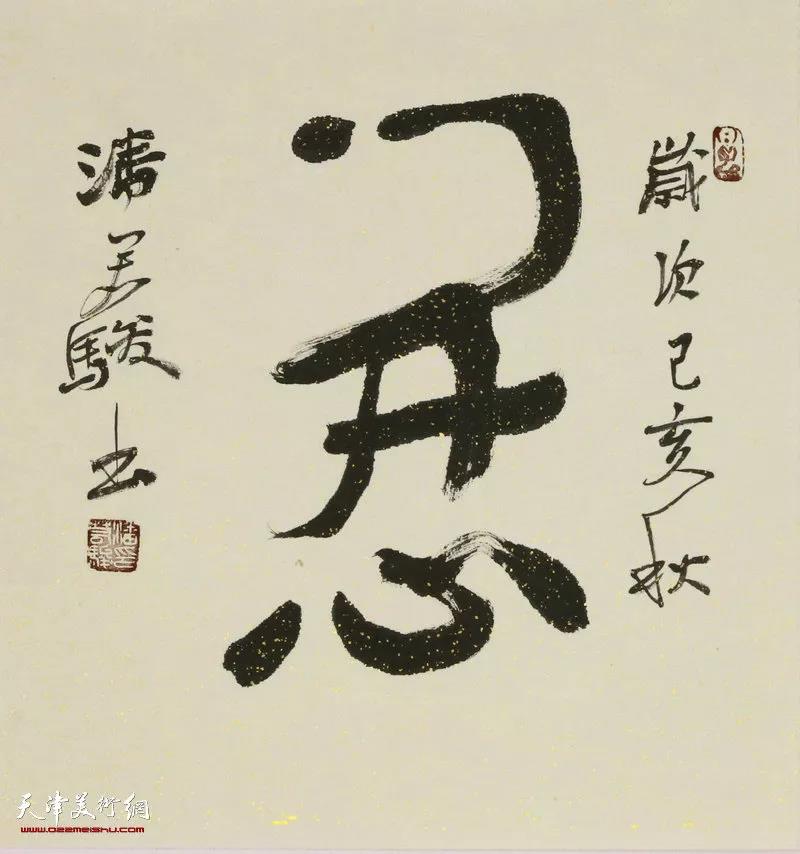 歲次己亥秋
開心
駿书
天津美術網
www.022meishu.com